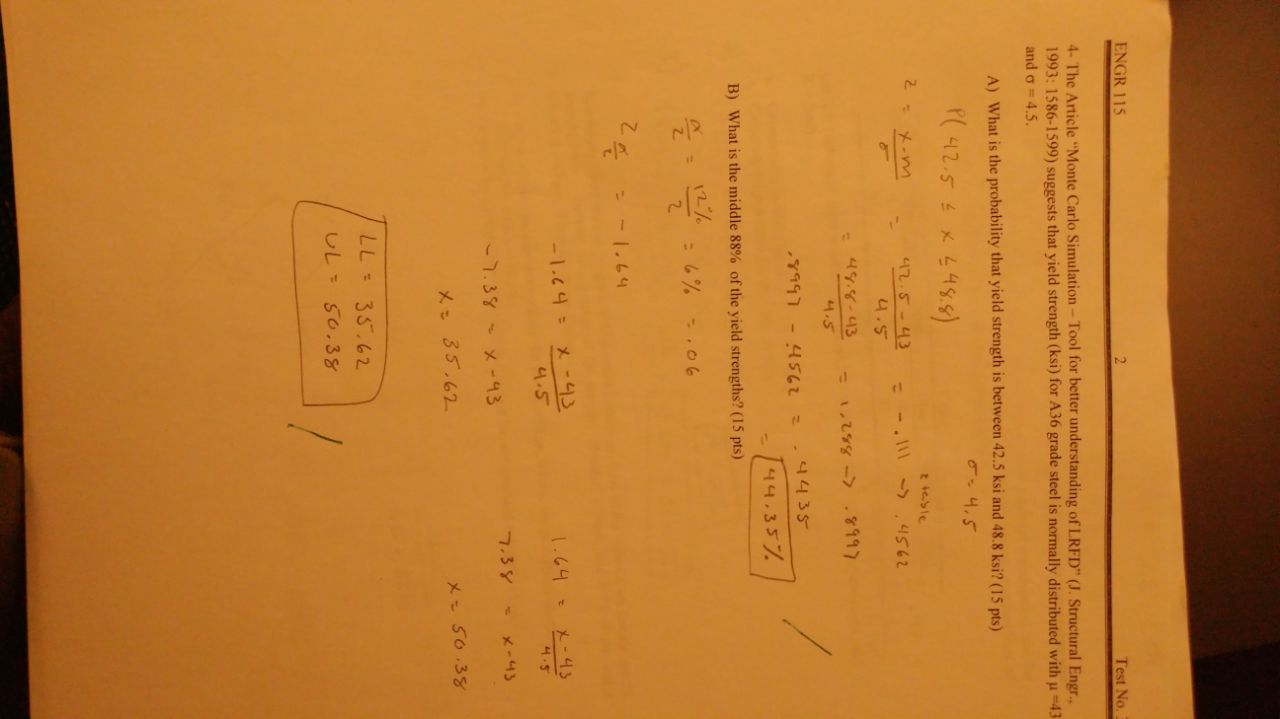 ENGR 115 2 Test No.
4- The Article "Monte Carlo Simulation – Tool for better understanding of LRFD" (J. Structural Engr.,
1993: 1586-1599) suggests that yield strength (ksi) for A36 grade steel is normally distributed with μ =43
and σ = 4.5.
A) What is the probability that yield strength is between 42.5 ksi and 48.8 ksi? (15 pts)
σ = 4.5
P( 42.5 ≤ x ≤ 48.8)
z table
z = x-m/σ = 42.5-43/4.5 = -.111 -> .4562
= 48.8-43/4.5 = 1.288 -> .8997
.8997 - .4562 = .4435
= 44.35%
B) What is the middle 88% of the yield strengths? (15 pts)
α/2 = 12%/2 = 6% = .06
z α/2 = -1.64
-1.64 = x-43/4.5 1.64 = x-43/4.5
-7.38 = x-43 7.38 = x-43
x = 35.62 x = 50.38
LL = 35.62
UL = 50.38